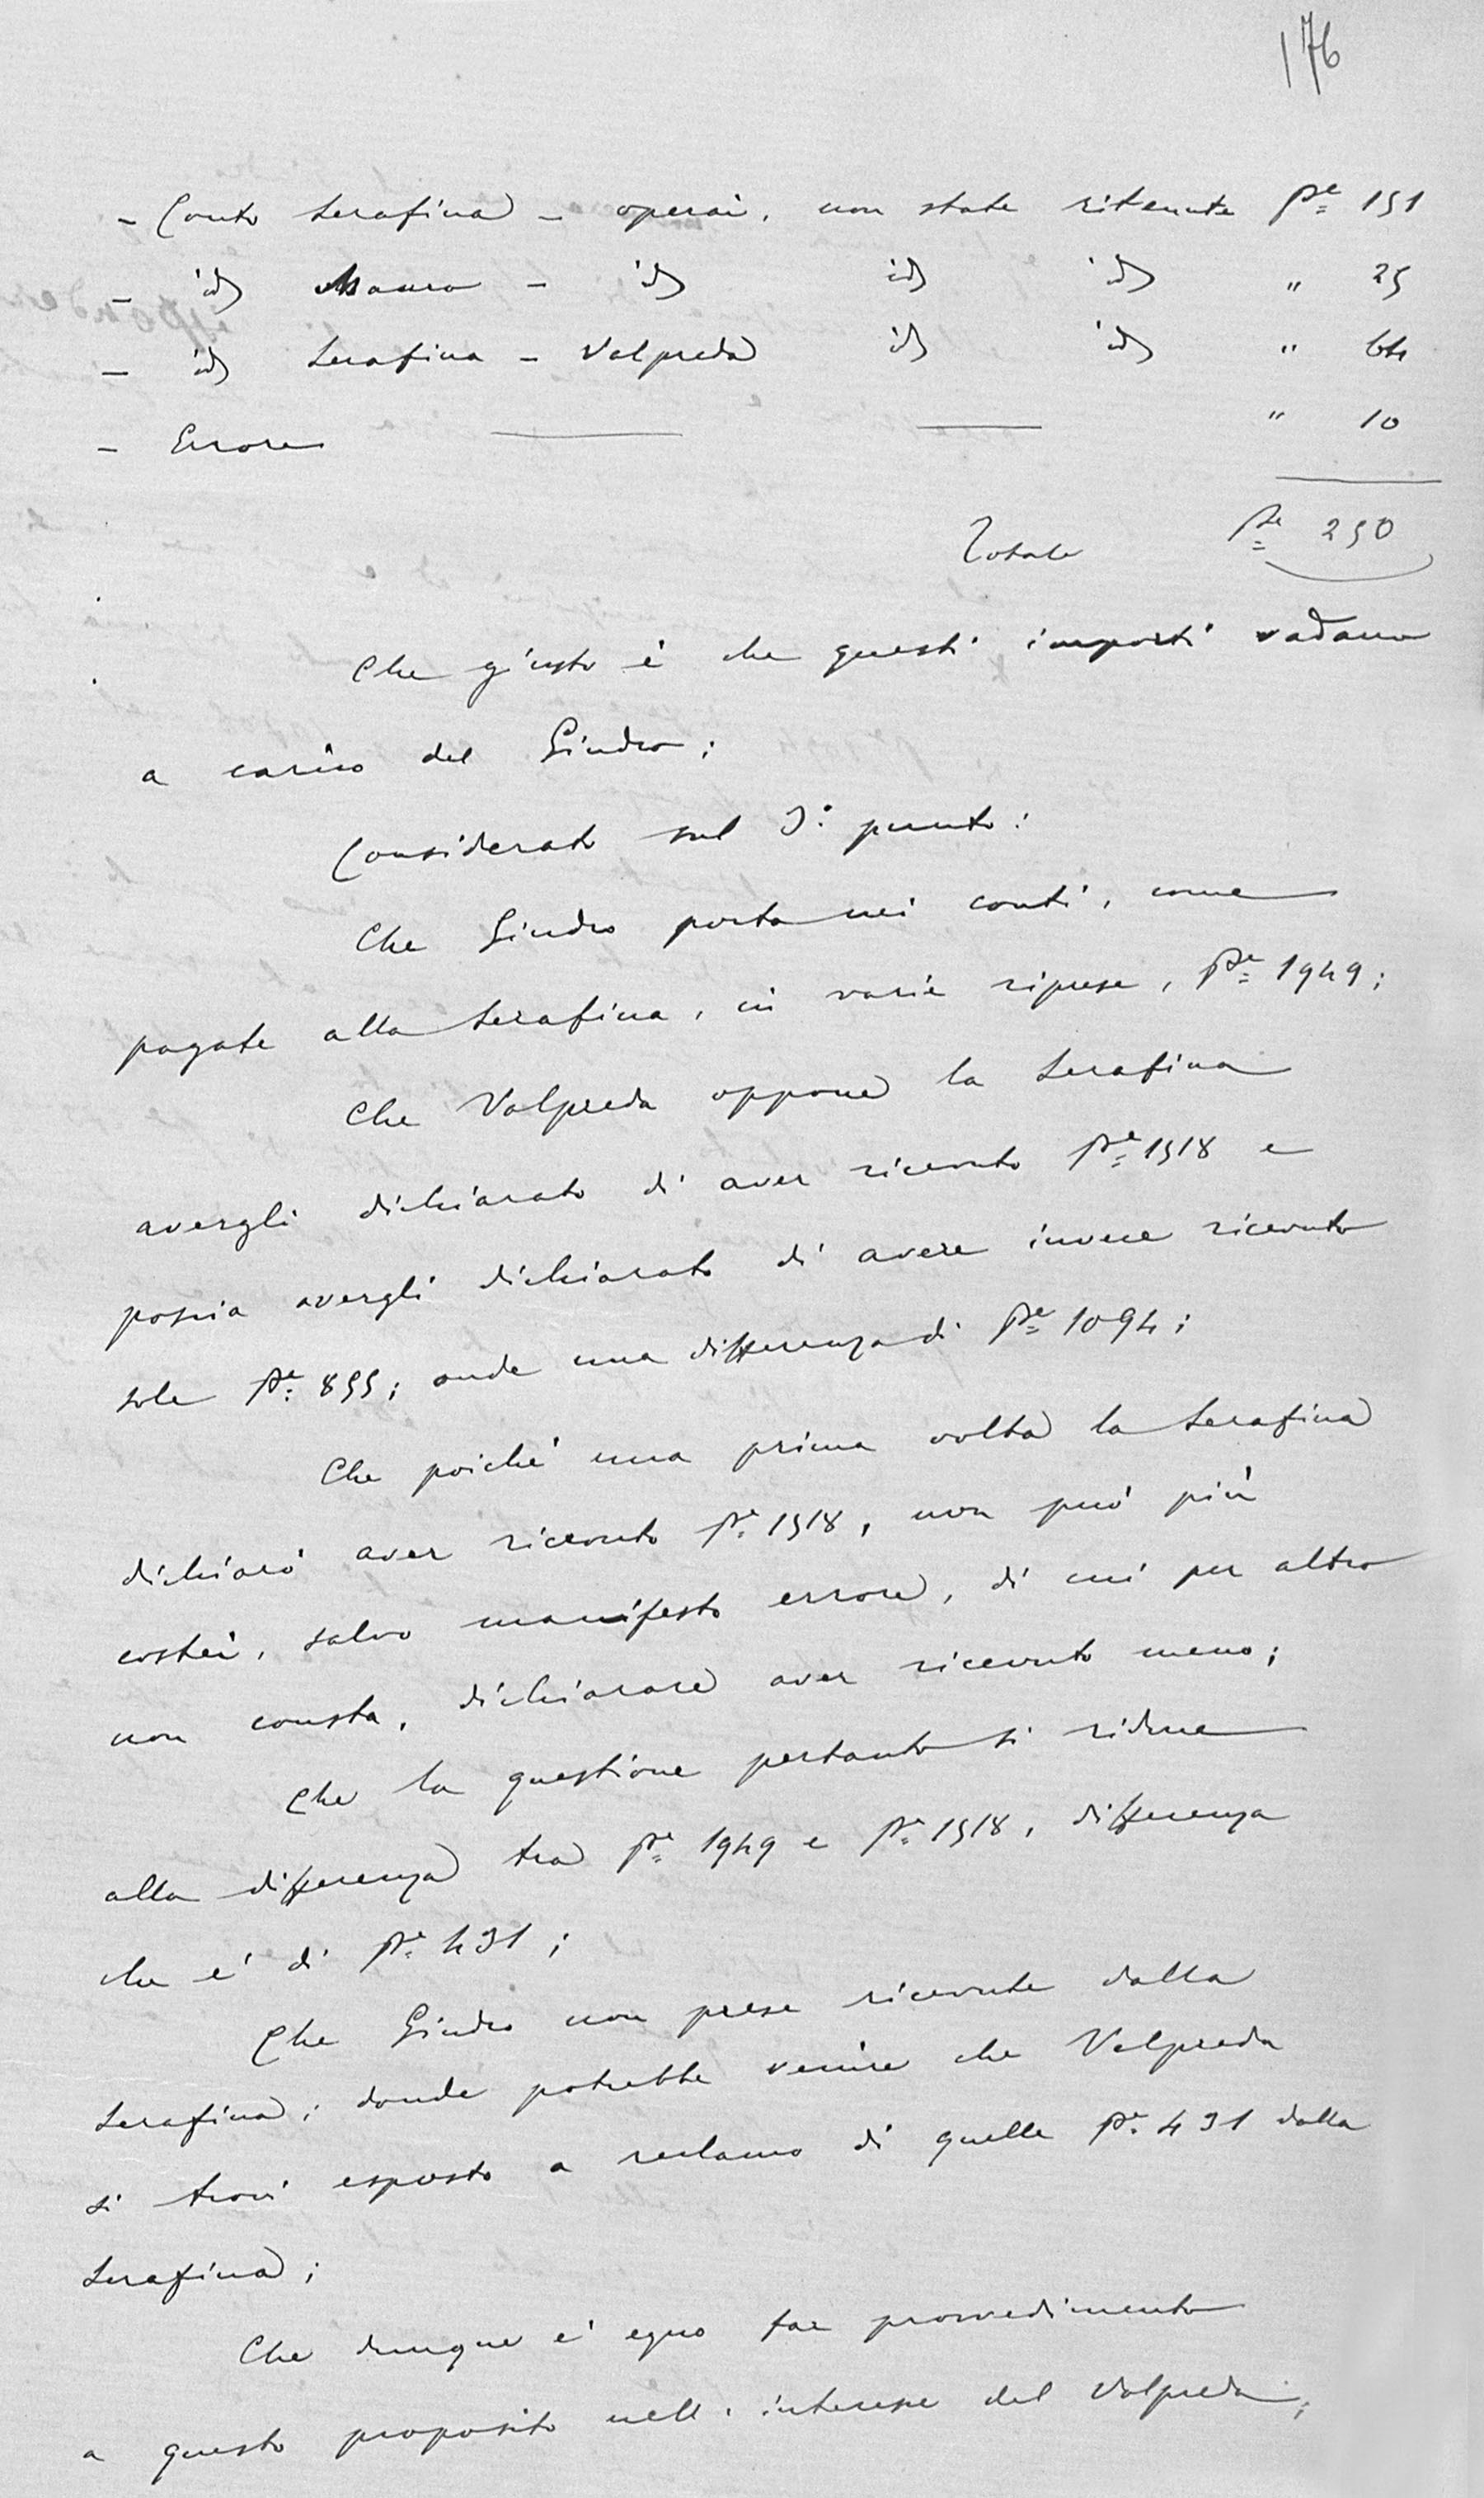 176
- Conto Serafina - operai, non state ritenute Pe 151
- id Mauro - id id id " 25
- id Serafina - Volpreda id id " 64
- Errore " 10
Totale Pe 250
Che giusto è che questi importi vadano
a carico del Giudro;
Considerato sul 3º punto:
Che Giudro porta nei conti, come
pagate alla Serafina, in varie riprese, Pe 1949;
Che Volpreda oppone la Serafina
avergli dichiarato di aver ricevuto Pe 1518 e
poscia avergli dichiarato di avere invece ricevuto
sole Pe 855; onde una differenza di Pe 1094;
Che poiché una prima volta la Serafina
dichiarò aver ricevuto Pe 1518, non può più
costei, salvo manifesto errore, di cui per altro
non consta, dichiarare aver ricevuto meno;
Che la questione pertanto si riduce
alla differenza tra Pe 1949 e Pe 1518, differenza
che è di Pe 431;
Che Giudro non prese ricevute dalla
Serafina; donde potrebbe venire che Volpreda
si trovi esposto a reclamo di quelle Pe 431 dalla
Serafina;
Che dunque è equo far provvedimento
a questo proposito nell'interesse del Volpreda;